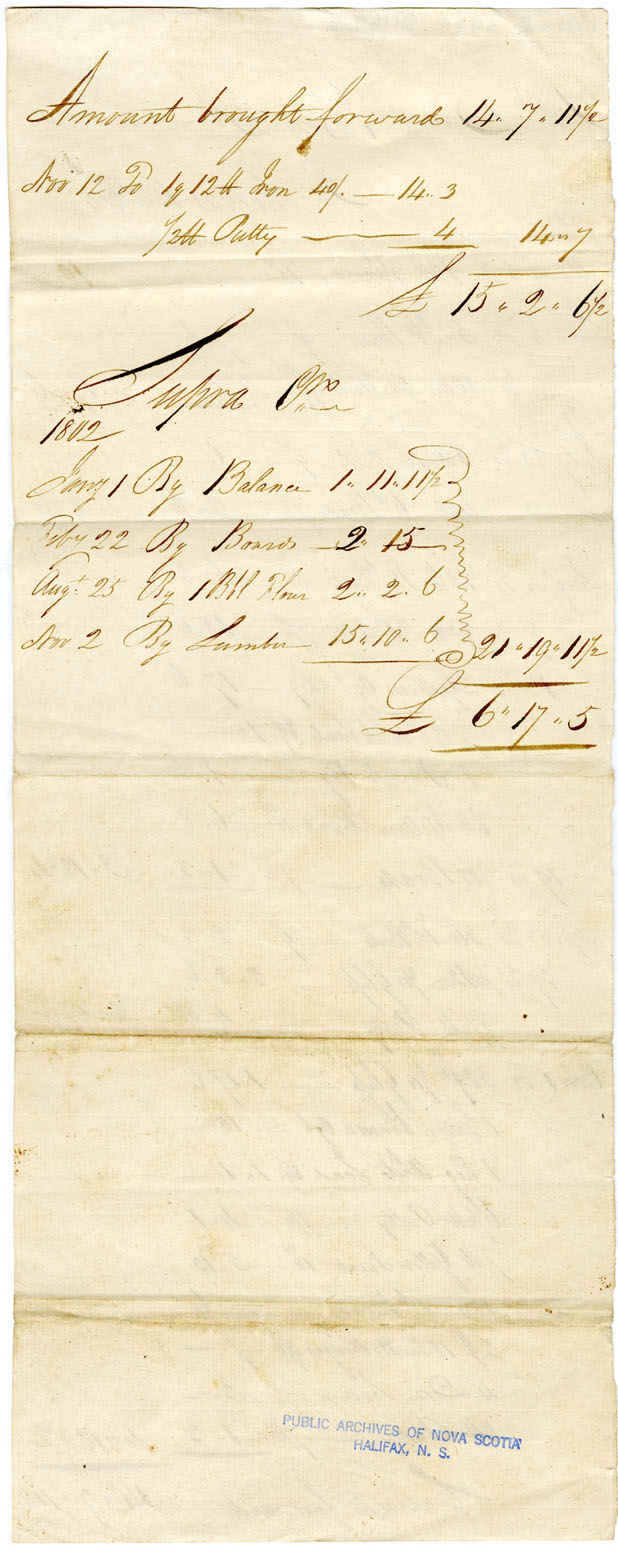 Amount brought forward 14" 7" 11 1/2
Nov 12 To 1q 12 lb Iron 40/. — 14" 3
1/2 lb Putty — 4 14" 7
£ 15" 2" 6 1/2
Supra
1802
Jany 1 By Balance 1" 11" 11 1/2
Feby 22 By Boards — 2" 15 —
Augt. 25 By 1 Bbl Flour 2" 2" 6
Nov 2 By Lumber 15" 10" 6 21" 19" 11 1/2
£ 6" 17" 5
PUBLIC ARCHIVES OF NOVA SCOTIA
HALIFAX, N. S.